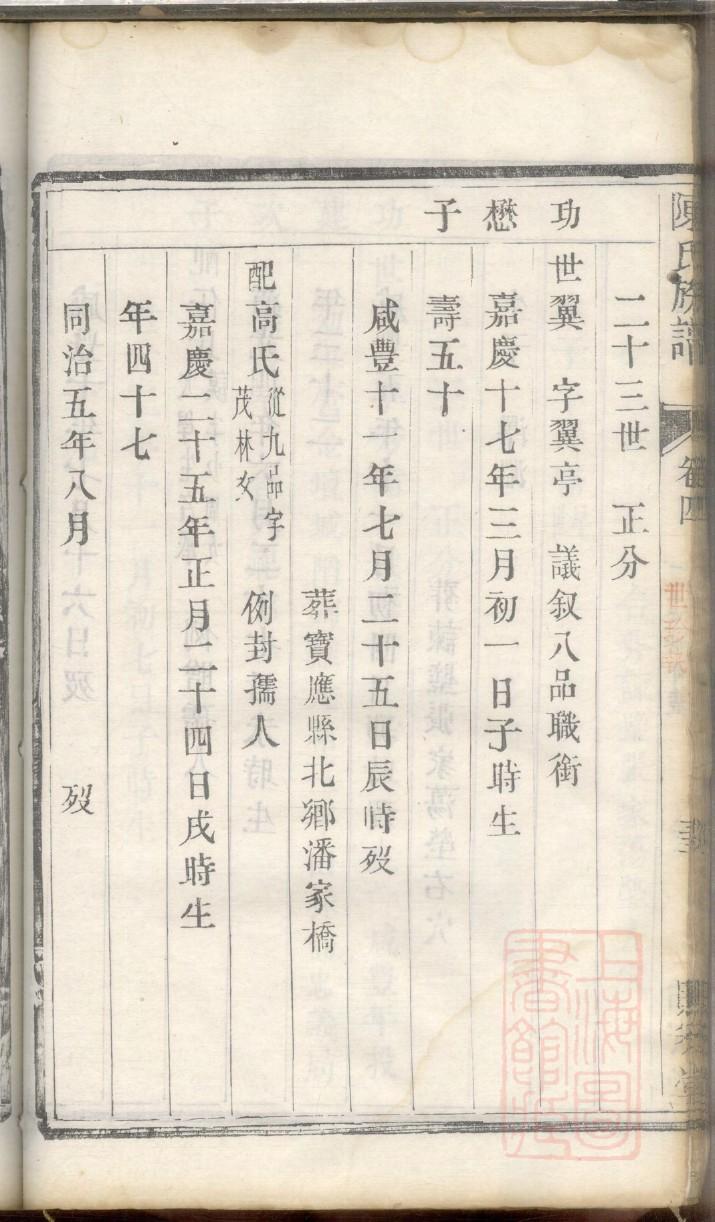 陳氏族譜 卷四
二十三世 正分
功懋子
世翼 字翼亭 議叙八品職銜
嘉慶十七年三月初一日子時生
壽五十
咸豐十一年七月二十五日辰時歿
葬寶應縣北鄉潘家橋
配高氏 從九品字茂林女 例封孺人
嘉慶二十五年正月二十四日戌時生
年四十七
同治五年八月 歿
上海圖書館藏